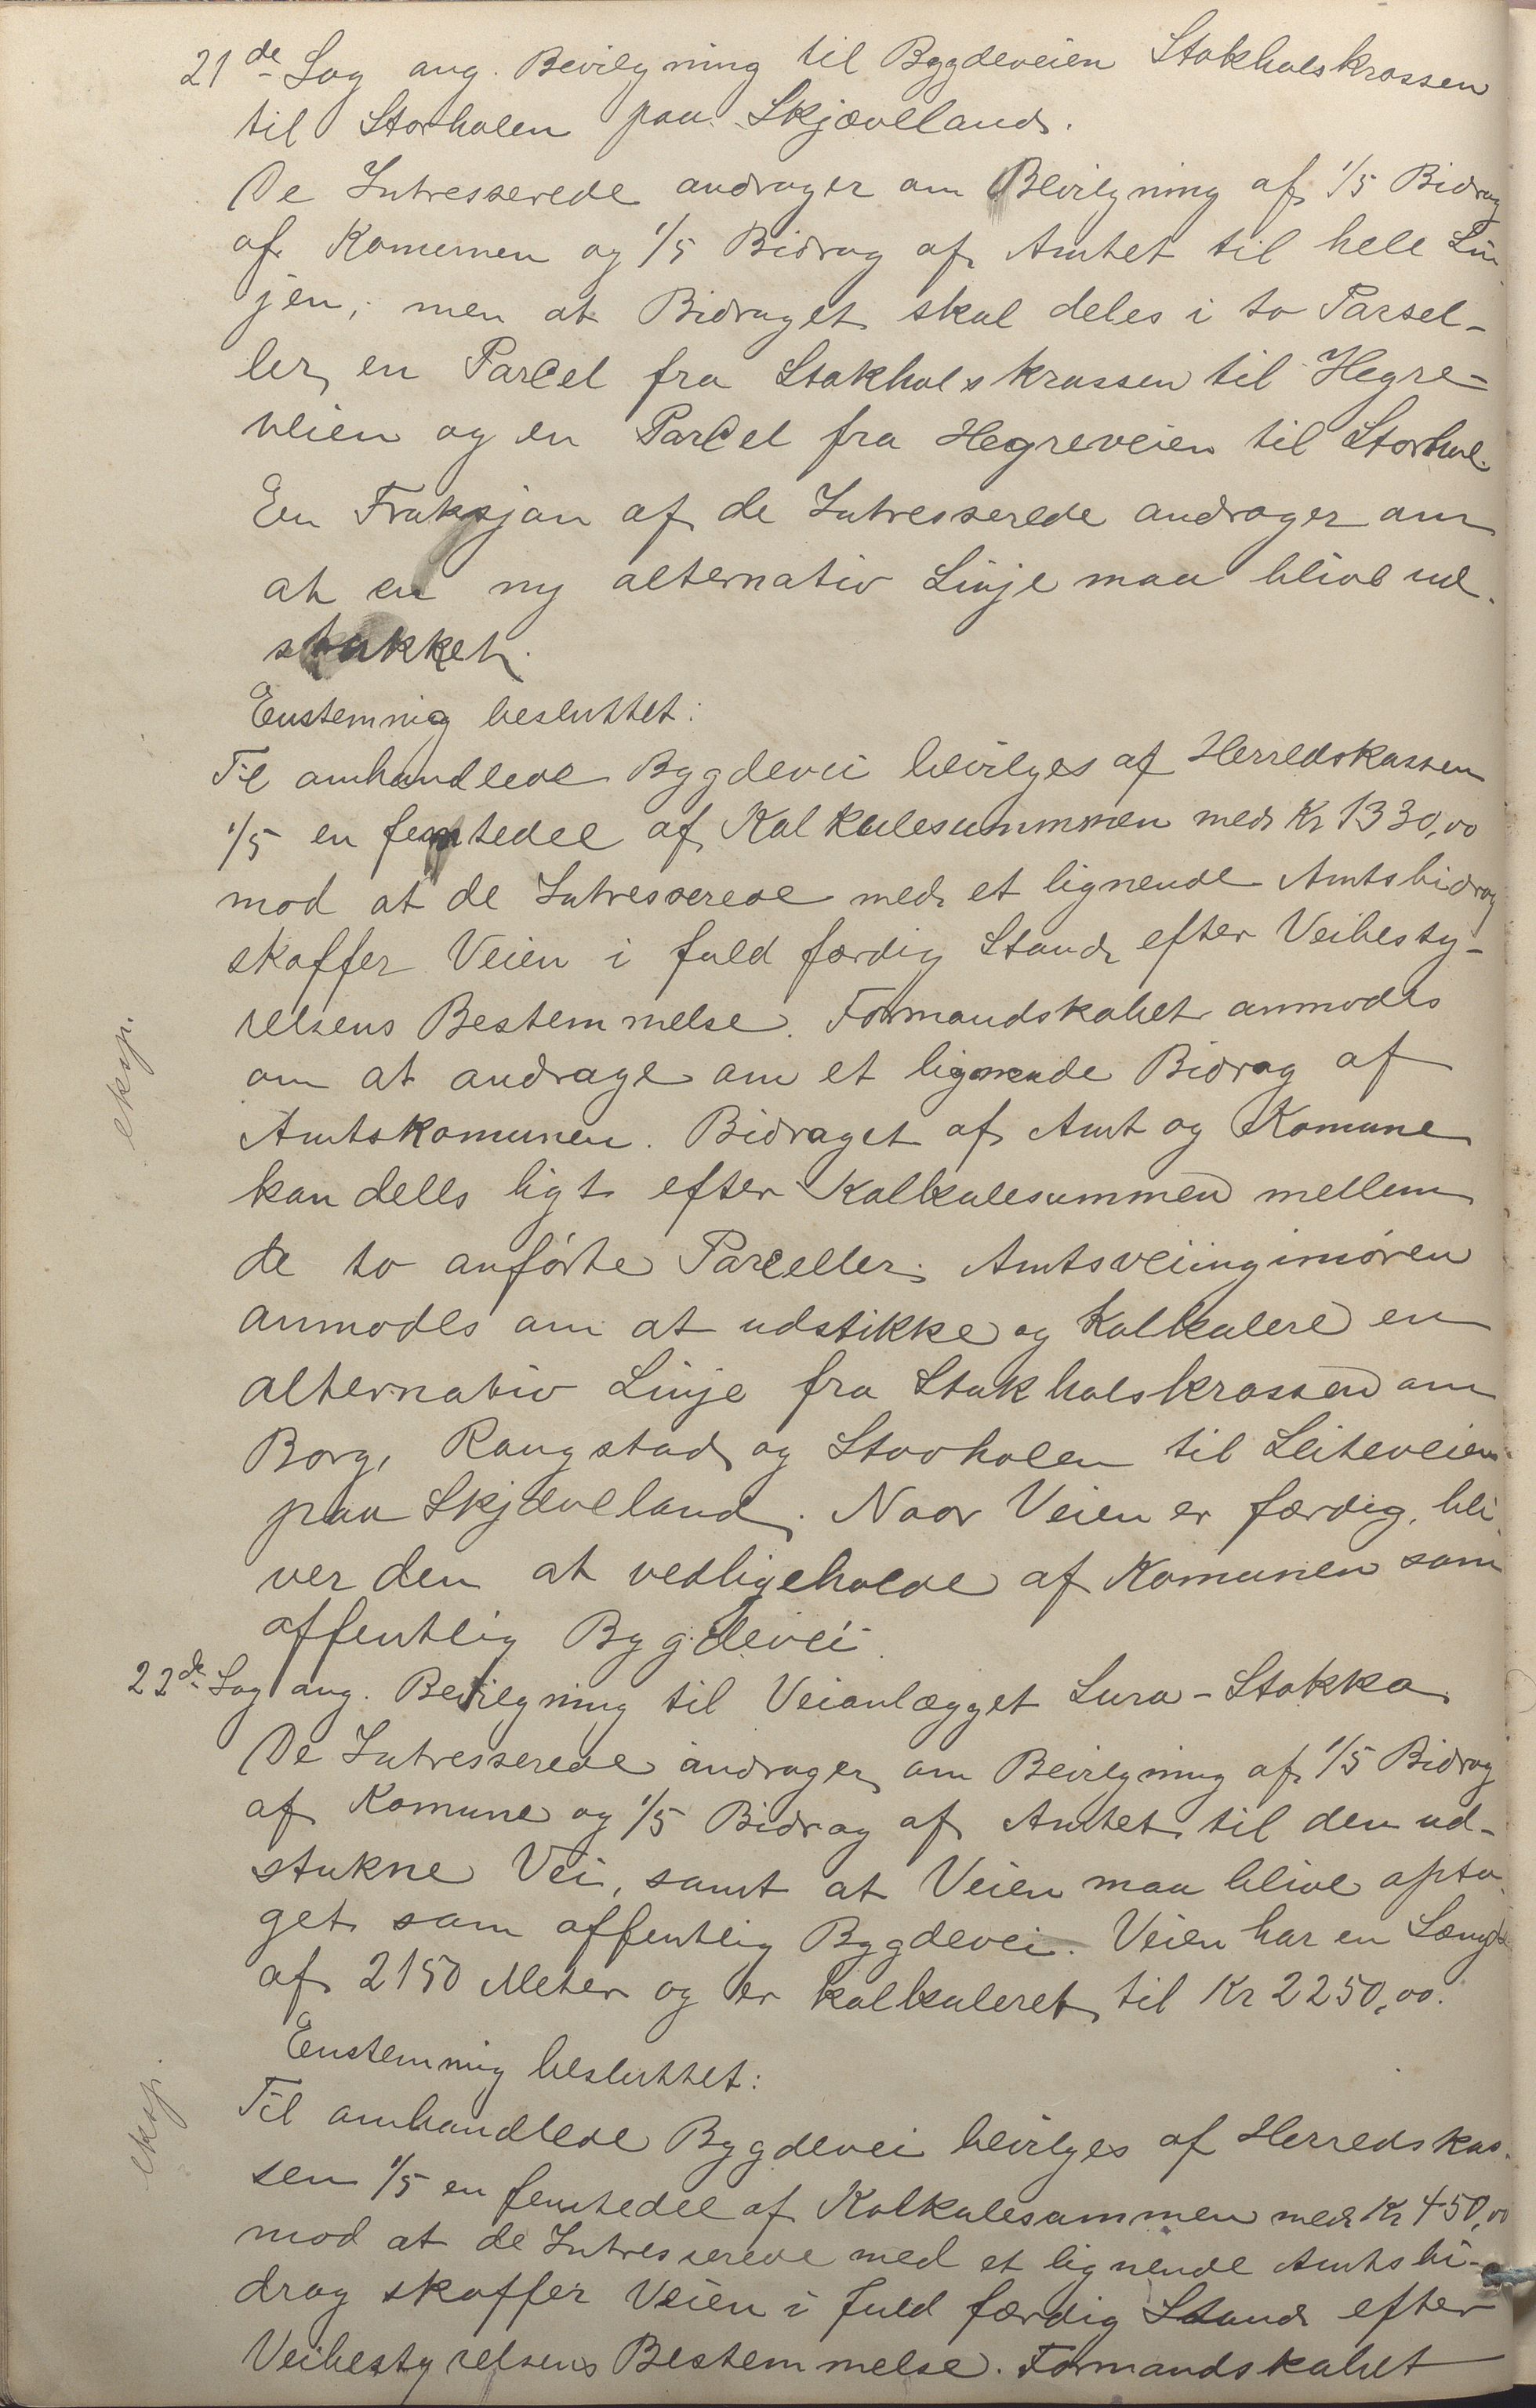 21de Sag ang. Bevilgning til Bygdeveien Stokholskrossen
til Storholen paa Skjævelland.
De Intresserede andrager om Bevilgning af 1/5 Bidrag
af Komunen og 1/5 Bidrag af Amtet til hele Lin
jen, men at Bidraget skal deles i to Parsel-
ler, en Parcel fra Stokholskrossen til Hegre-
veien og en Parcel fra Hegreveien til Storhol.
En Fraksjon af de Intresserede andrager om
at en ny alternativ Linje maa blive ud.
stukket.
Enstemmig besluttet:
Til omhandlede Bygdevei bevilges af Herredskassen
1/5 en femtedel af Kalkulesummmen med Kr 1330,00
mod at de Intresserede med et lignende Amtsbidrag
skaffer Veien i fuld færdig Stand efter Veibesty-
relsens Bestemmelse. Formandskabet anmodes
om at andrage om et lignende Bidrag af
Amtskomunen. Bidraget af Amt og Komune
kan deles ligt efter Kalkulesummen mellem
de to anførte Parceller. Amtsveiinginiøren
anmodes om at udstikke og kalkulere en
alternativ Linje fra Stokholskrossen om
Borg, Rangstad og Stovholen til Leiteveien
paa Skjævelland. Naar Veien er færdig, bli
ver den at vedligeholde af Komunen som
offentlig Bygdevei.
22de Sag ang. Bevilgning til Veianlægget Lura-Stokka.
De Intresserede andrager om Bevilgning af 1/5 Bidrag
af Komune og 1/5 Bidrag af Amtet til den ud-
stukne Vei, samt at Veien maa blive opta
get som offentlig Bygdevei. Veien har en Længde
af 2150 Meter og er kalkuleret til Kr 2250,00.
Enstemmig besluttet:
Til omhandlede Bygdevei bevilges af Herredskas-
sen 1/5 en femtedel af Kalkulesummen med Kr 450,00
mod at de Intresserede med et lignende Amtsbi-
drag skaffer Veien i fuld færdig Stand efter
Veibestyrelsens Bestemmelse. Formandskabet
eksp.
eksp.